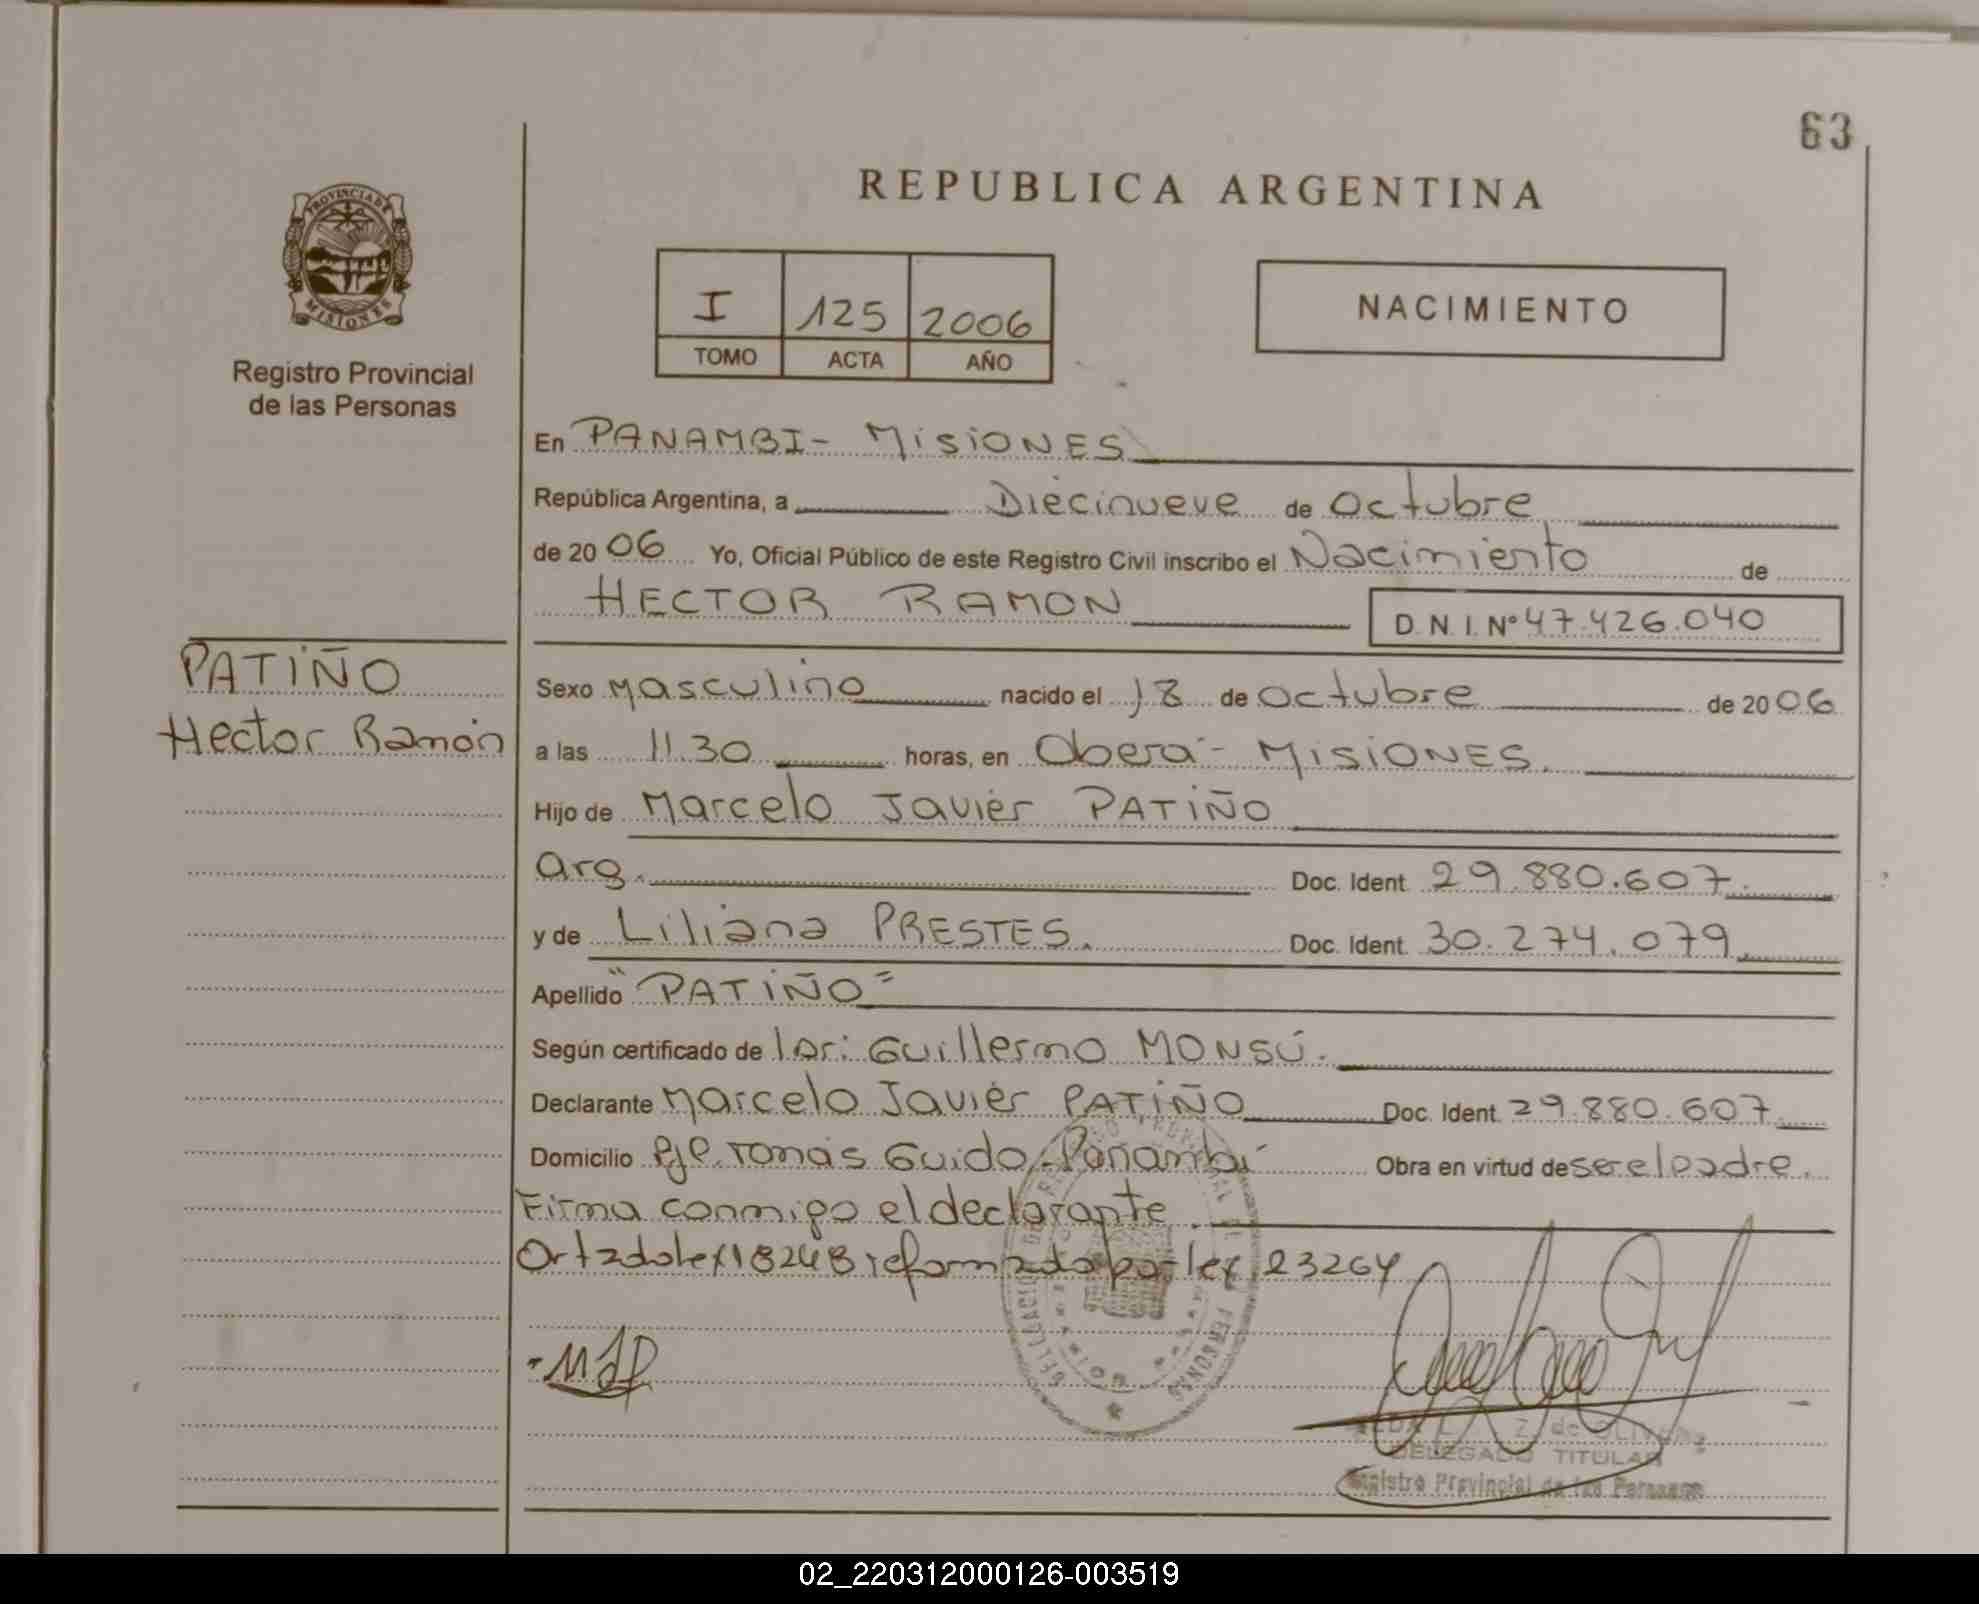 63
REPUBLICA ARGENTINA
PROVINCIA DE
MISIONES
Registro Provincial
de las Personas
I 125 2006
TOMO ACTA AÑO
NACIMIENTO
En PANAMBI- MISIONES
República Argentina, a Diecinueve de Octubre
de 20 06 Yo, Oficial Público de este Registro Civil inscribo el Nacimiento de
HECTOR RAMON D.N.I. Nº 47.426.040
PATIÑO
Hector Ramón
Sexo Masculino nacido el 18 de Octubre de 20 06
a las 11.30 horas, en Oberá - MISIONES.
Hijo de Marcelo Javier PATIÑO
Arg. Doc. Ident. 29.880.607.
y de Liliana PRESTES. Doc. Ident. 30.274.079
Apellido "PATIÑO"
Según certificado de Guillermo MONSÚ.
Declarante Marcelo Javier PATIÑO Doc. Ident. 29.880.607
Domicilio Pje. Tomás Guido - Panambí Obra en virtud de ser el padre.
Firma conmigo el declarante.
Art 2do ley 18248 reformado por ley 23264
MJP
DELEGADO TITULAR
Registro Provincial de las Personas
02_220312000126-003519